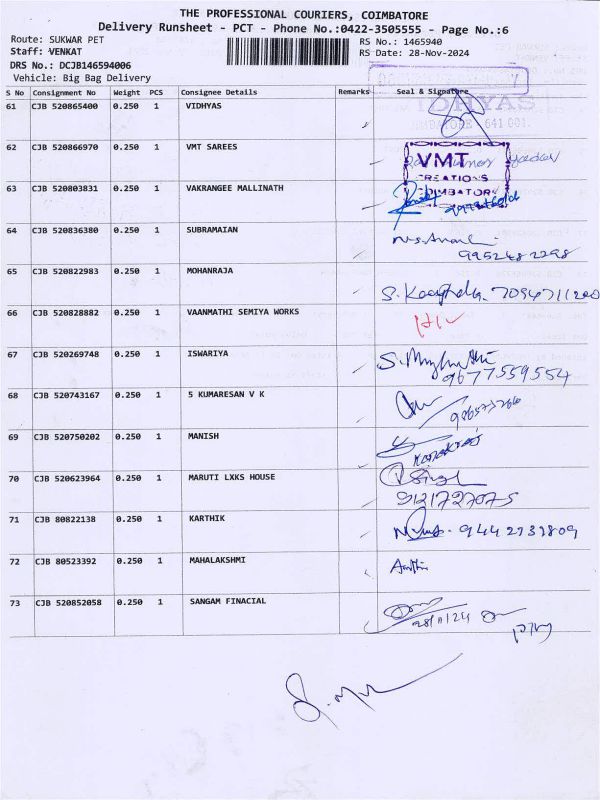 THE PROFESSIONAL COURIERS, COIMBATORE
Delivery Runsheet - PCT - Phone No.:0422-3505555 - Page No.:6
Route: SUKWAR PET
Staff: VENKAT
DRS No.: DCJB146594006
Vehicle: Big Bag Delivery
RS No.: 1465940
RS Date: 28-Nov-2024
S No Consignment No Weight PCS Consignee Details Remarks Seal & Signature
61 CJB 520865400 0.250 1 VIDHYAS
VIDHYAS
641 001.
62 CJB 520866970 0.250 1 VMT SAREES
VMT
CREATIONS
COIMBATORE
63 CJB 520803831 0.250 1 VAKRANGEE MALLINATH
64 CJB 520836380 0.250 1 SUBRAMAIAN
9952482298
65 CJB 520822983 0.250 1 MOHANRAJA
7094711200
66 CJB 520828882 0.250 1 VAANMATHI SEMIYA WORKS
67 CJB 520269748 0.250 1 ISWARIYA
9677559554
68 CJB 520743167 0.250 1 5 KUMARESAN V K
69 CJB 520750202 0.250 1 MANISH
70 CJB 520623964 0.250 1 MARUTI LXKS HOUSE
9121727075
71 CJB 80822138 0.250 1 KARTHIK
9442737809
72 CJB 80523392 0.250 1 MAHALAKSHMI
73 CJB 520852058 0.250 1 SANGAM FINACIAL
28/11/24